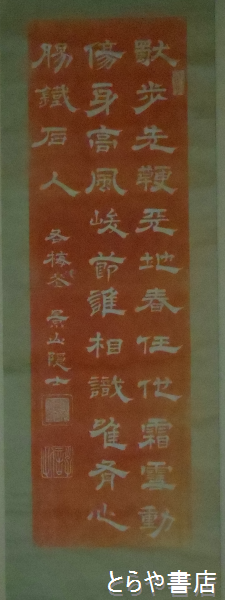 獸步先鞭天地春任他霜雪動
傷身高風峻節誰相識唯有心
腸鐵石人
冬梅 景山隠士
とらや書店